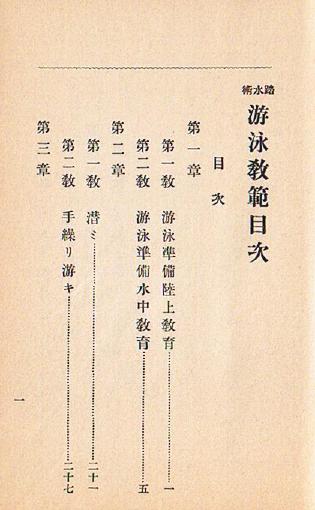 踏水術
游泳敎範目次
目次
第一章
第一敎 游泳準備陸上敎育……一
第二敎 游泳準備水中敎育……五
第二章
第一敎 潜ミ……二十一
第二敎 手繰リ游キ……二十七
第三章
一